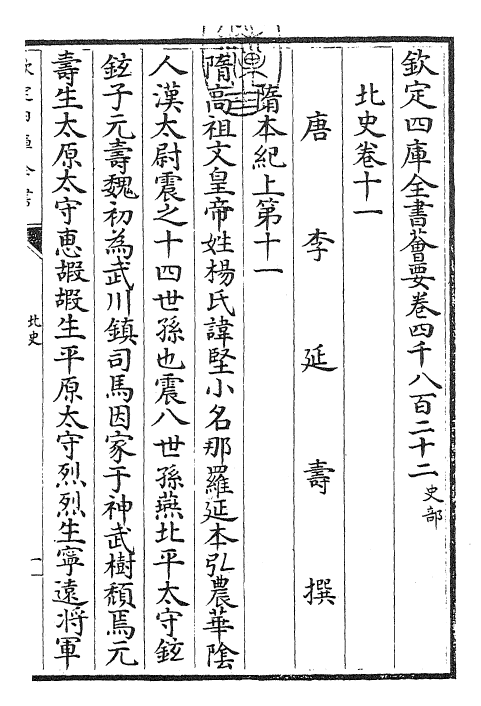 欽定四庫全書薈要卷四千八百二十二 史部
北史卷十一
唐 李 延 壽 撰
隋本紀上第十一
隋高祖文皇帝姓楊氏諱堅小名那羅延本弘農華陰
人漢太尉震之十四世孫也震八世孫燕北平太守鉉
鉉子元壽魏初為武川鎮司馬因家于神武樹頹焉元
壽生太原太守惠嘏嘏生平原太守烈烈生寧遠將軍
欽定四庫全書
北史
一